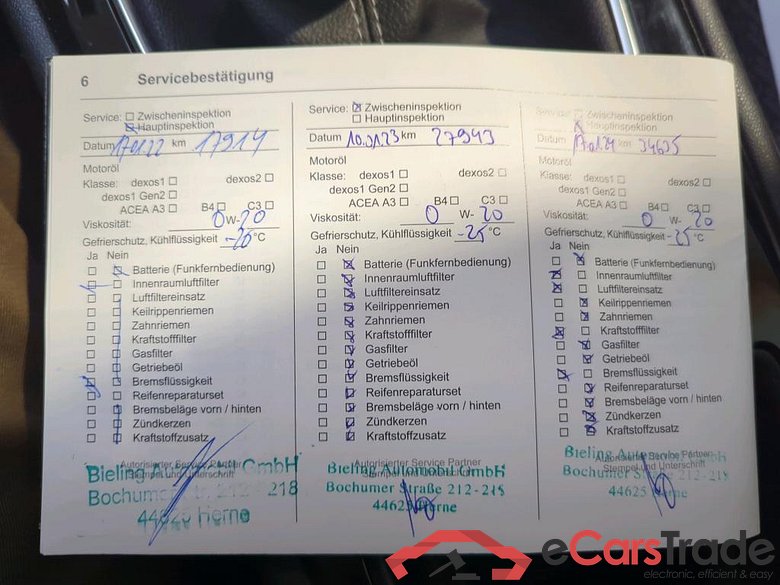 6 Servicebestätigung
Service: Zwischeninspektion
Hauptinspektion
Datum 17.01.22 km 17914
Motoröl
Klasse: dexos1 dexos2
dexos1 Gen2
ACEA A3 B4 C3
Viskosität: 0 W-20
Gefrierschutz, Kühlflüssigkeit -26 °C
Ja Nein
Batterie (Funkfernbedienung)
Innenraumluftfilter
Luftfiltereinsatz
Keilrippenriemen
Zahnriemen
Kraftstofffilter
Gasfilter
Getriebeöl
Bremsflüssigkeit
Reifenreparaturset
Bremsbeläge vorn / hinten
Zündkerzen
Kraftstoffzusatz
Autorisierter Service Partner
Stempel und Unterschrift
Bieling GmbH
Bochumer 212 - 218
44625 Herne
Service: Zwischeninspektion
Hauptinspektion
Datum 10.01.23 km 27943
Motoröl
Klasse: dexos1 dexos2
dexos1 Gen2
ACEA A3 B4 C3
Viskosität: 0 W-20
Gefrierschutz, Kühlflüssigkeit -25 °C
Ja Nein
Batterie (Funkfernbedienung)
Innenraumluftfilter
Luftfiltereinsatz
Keilrippenriemen
Zahnriemen
Kraftstofffilter
Gasfilter
Getriebeöl
Bremsflüssigkeit
Reifenreparaturset
Bremsbeläge vorn / hinten
Zündkerzen
Kraftstoffzusatz
Autorisierter Service Partner
Bieling Automobil GmbH
Bochumer Straße 212-218
44625 Herne
Service: Zwischeninspektion
Hauptinspektion
Datum 17.01.24 km 34635
Motoröl
Klasse: dexos1 dexos2
dexos1 Gen2
ACEA A3 B4 C3
Viskosität: 0 W-20
Gefrierschutz, Kühlflüssigkeit -25 °C
Ja Nein
Batterie (Funkfernbedienung)
Innenraumluftfilter
Luftfiltereinsatz
Keilrippenriemen
Zahnriemen
Kraftstofffilter
Gasfilter
Getriebeöl
Bremsflüssigkeit
Reifenreparaturset
Bremsbeläge vorn / hinten
Zündkerzen
Kraftstoffzusatz
Autorisierter Service Partner
Stempel und Unterschrift
Bieling GmbH
Bochumer 212 - 218
44625 Herne
eCarsTrade
electronic, efficient & easy